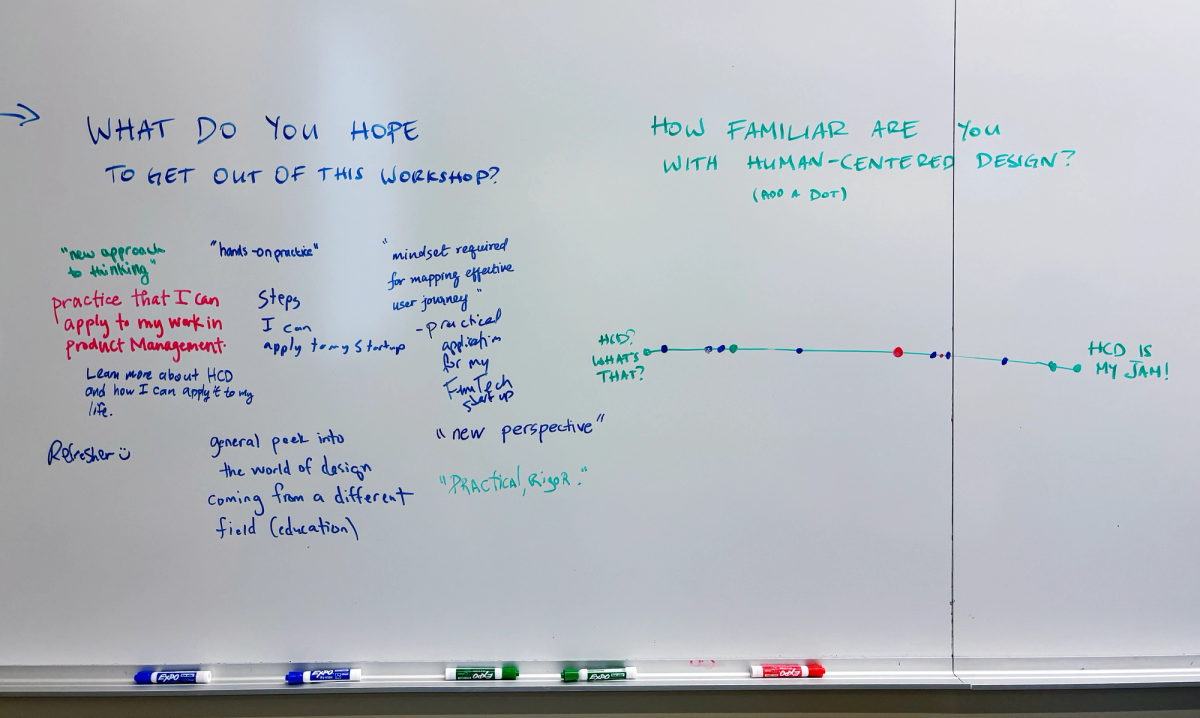 WHAT DO YOU HOPE
TO GET OUT OF THIS WORKSHOP?
"new approach
to thinking"
"hands-on practice"
"mindset required
for mapping effective
user journey"
practice that I can
apply to my work in
product Management.
Steps
I can
apply to my startup
- practical
application
for my
FemTech
start up
Learn more about HCD
and how I can apply it to my
life.
Refresher
general peek into
the world of design
coming from a different
field (education)
"new perspective"
"PRACTICAL, RIGOR."
HOW FAMILIAR ARE YOU
WITH HUMAN-CENTERED DESIGN?
(ADD A DOT)
HCD?
WHAT'S
THAT?
HCD IS
MY JAM!
EXPO
EXPO
EXPO
EXPO
EXPO